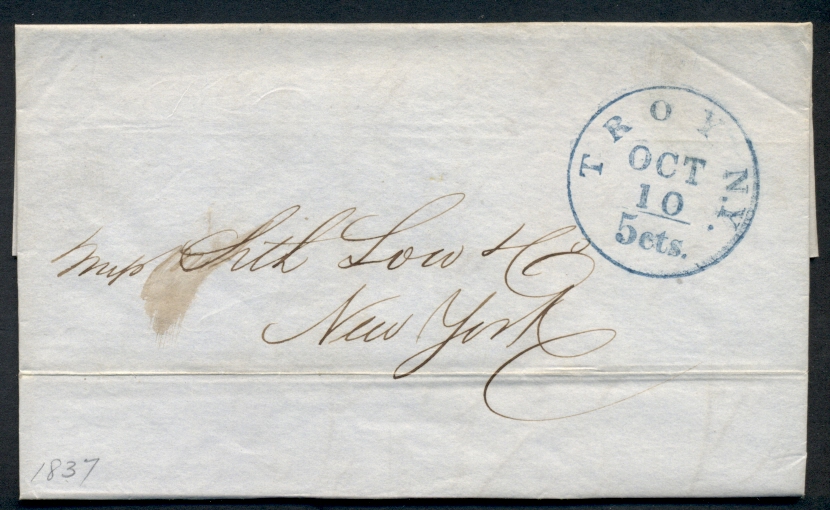 TROY N.Y.
OCT
10
5cts.
Mess Seth Low & Co
New York
1837